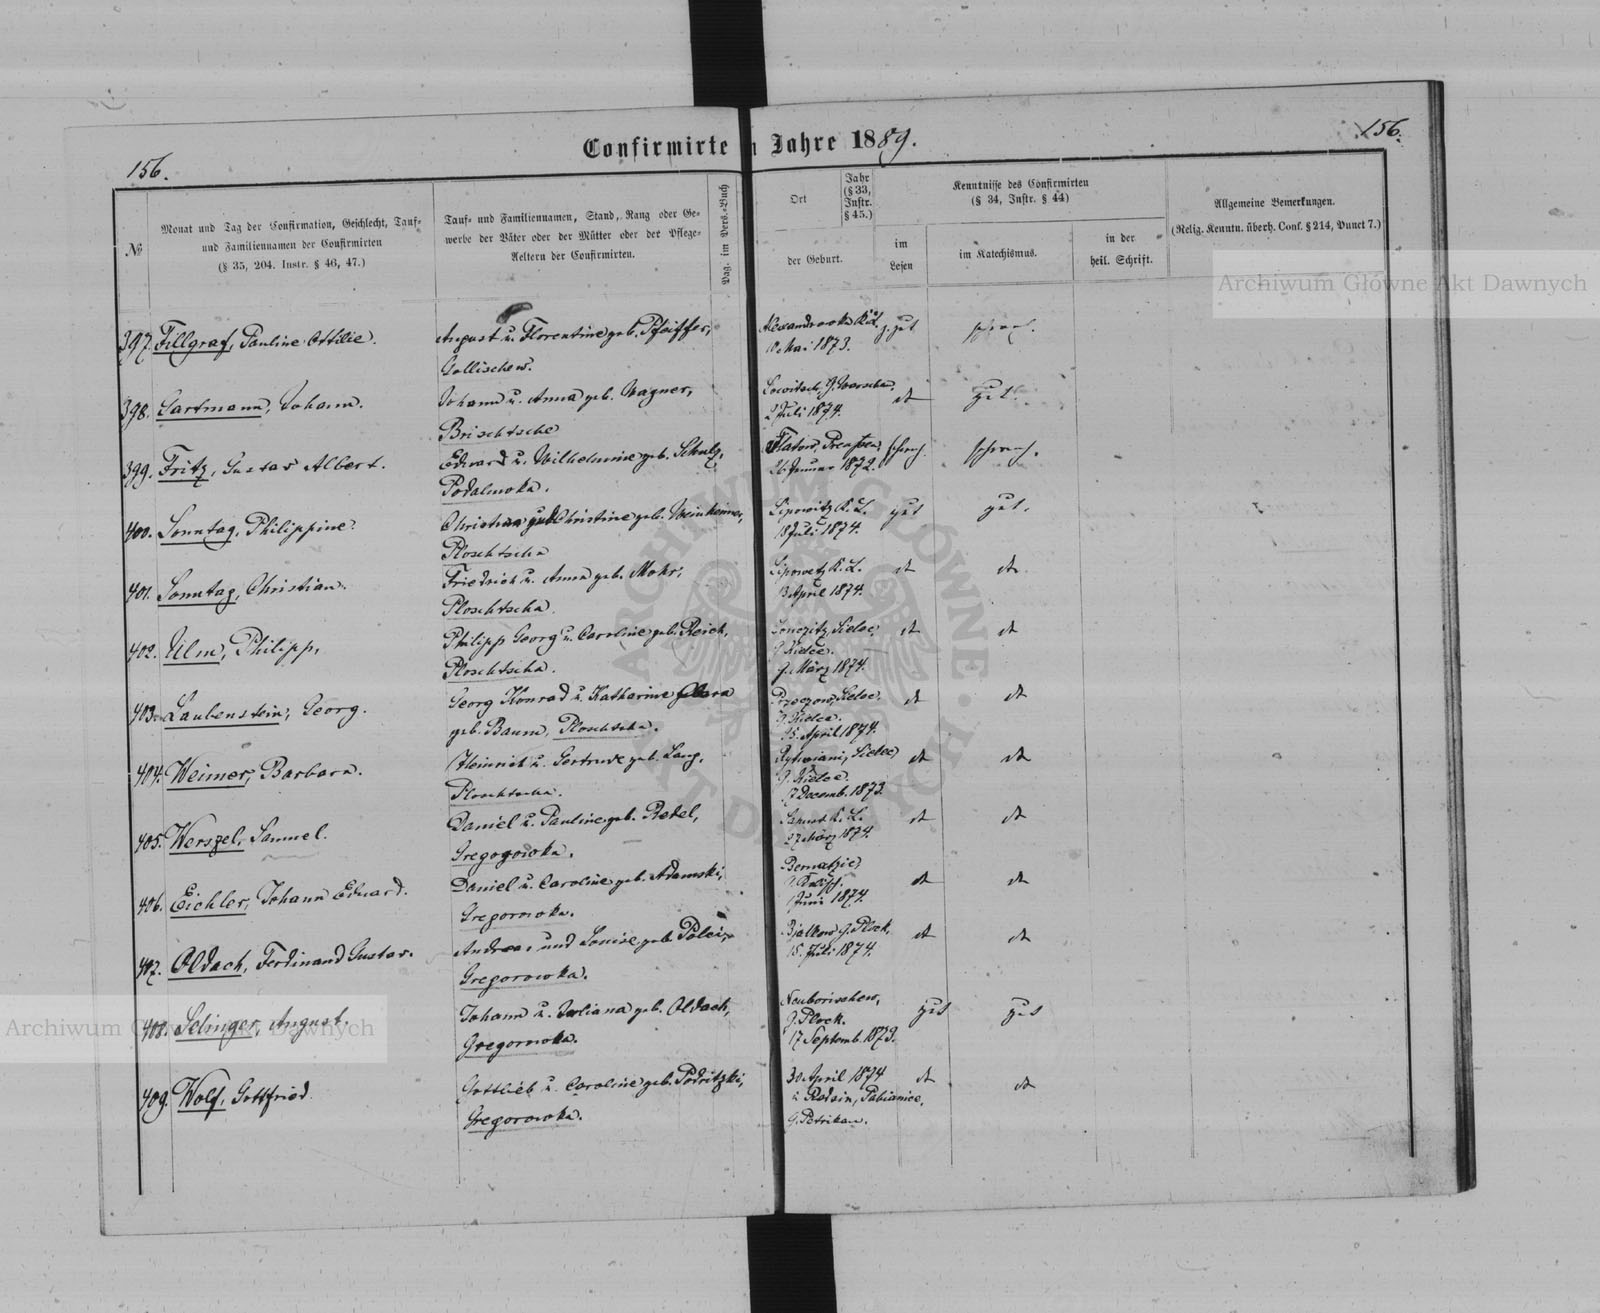 156.
Confirmirte
Jahre 1889.
156.
№
Monat und Tag der Confirmation, Geschlecht, Tauf-
und Familiennamen der Confirmirten
(§ 35, 204. Instr. § 46, 47.)
Tauf- und Familiennamen, Stand, Rang oder Ge-
werbe der Väter oder der Mütter oder der Pflege-
Aeltern der Confirmirten.
Pag. im Pers.-Buch
Ort
Jahr
(§ 33,
Instr.
§ 45.)
der Geburt.
Kenntnisse des Confirmirten
(§ 34, Instr. § 44)
im
Lesen
im Katechismus.
in der
heil. Schrift.
Allgemeine Bemerkungen.
(Relig. Kenntn. überh. Conf. § 214, Punct 7.)
Archiwum Główne Akt Dawnych
397. Fillgraf, Pauline Ottilie.
August u. Florentine geb. Pfeiffer,
Gollischew.
Alexandrowka
10 Mai 1873.
z. gut
schwach.
398. Hartmann, Johann.
Johann u. Anna geb. Wagner,
Brischtsche
Lowitsch, G. Warschau,
2 Juli 1874.
dt
gut.
399. Fritz, Gustav Albert.
Eduard u. Wilhelmine geb. Schulz,
Podalmoka.
Flatow, Preussen,
26 Januar 1872.
schwach.
schwach.
400. Sonntag, Philippine.
Christian und Christine geb. Weinheimer,
Ploschtscha
Lipowitz K. L.
18 Juli 1874.
gut
gut.
401. Sonntag, Christian.
Friedrich u. Anna geb. Mohr,
Ploschtscha.
Lipowetz K. L.
13 April 1874.
dt
dt
402. Ulm, Philipp,
Philipp Georg u. Caroline geb. Reich,
Ploschtscha.
Sielec,
G. Kielce.
9. März 1874.
dt
dt
403. Laubenstein, Georg.
Georg Konrad u. Katharine Clara
geb. Baum, Ploschtscha.
Sielec.
G. Kielce.
15. April 1874.
dt
dt
404. Weimer, Barbara.
Heinrich u. Gertrude geb. Lang,
Ploschtscha.
Rytwiani, Sielec,
G. Kielce.
17 Decemb. 1873.
dt
dt
405. Werszel, Samuel.
Daniel u. Pauline geb. Redel,
Gregorowka.
K. L.
27 März 1874.
dt
dt
406. Eichler, Johann Eduard.
Daniel u. Caroline geb. Adamski,
Gregorowka.
G. Kalisch.
Juni 1874.
dt
dt
407. Oldach, Ferdinand Gustav.
Andreas und Louise geb. Polei,
Gregorowka.
Bjalkow, G. Plock,
15. Juli 1874.
dt
dt
408. Selinger, August.
Johann u. Juliana geb. Oldach,
Gregorowka.
Neuborischew,
G. Plock.
17 Septemb. 1873.
gut
gut
409. Wolf, Gottfried.
Gottlieb u. Caroline geb. Podritzki,
Gregorowka.
30 April 1874
Pabianice,
G. Petrikau.
dt
dt
Archiwum Główne Akt Dawnych
ARCHIWUM GŁÓWNE AKT DAWNYCH